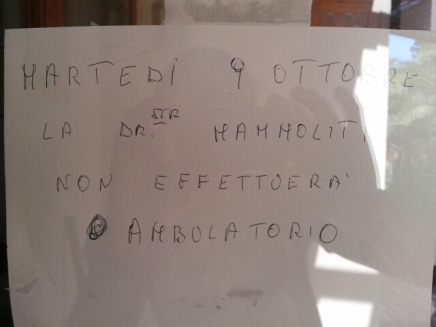 MARTEDÌ 9 OTTOBRE
LA DR.STR MAMMOLITI
NON EFFETTUERA'
AMBULATORIO